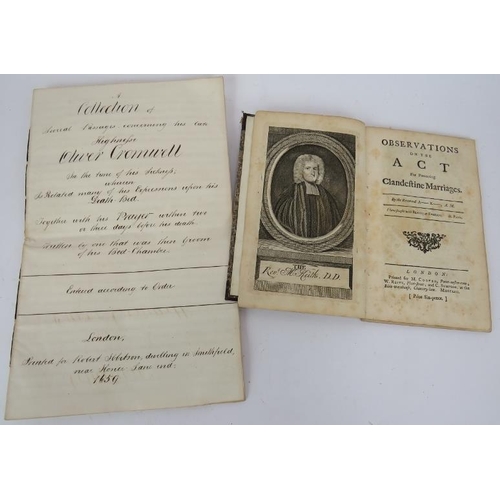 A
Collection of
Several Passages concerning his late
Highnesse
Oliver Cromwell
In the time of his Sickness,
wherein
is Related many of his Expressions upon his
Death Bed.
Together with his Prayer within two
or three days before his death.
Written by one that was then Groom
of his Bed Chamber.
Entered according to Order
London,
Printed for Robert Ibbitson, dwelling in Smithfield,
near Hosier Lane end.
1659
THE
Revd. Mr. Keith, D.D.
OBSERVATIONS
ON THE
ACT
For Preventing
Clandestine Marriages.
By the Reverend
LONDON:
Printed for M. Cooper, Pater-noster-row;
[Price Six-pence.]